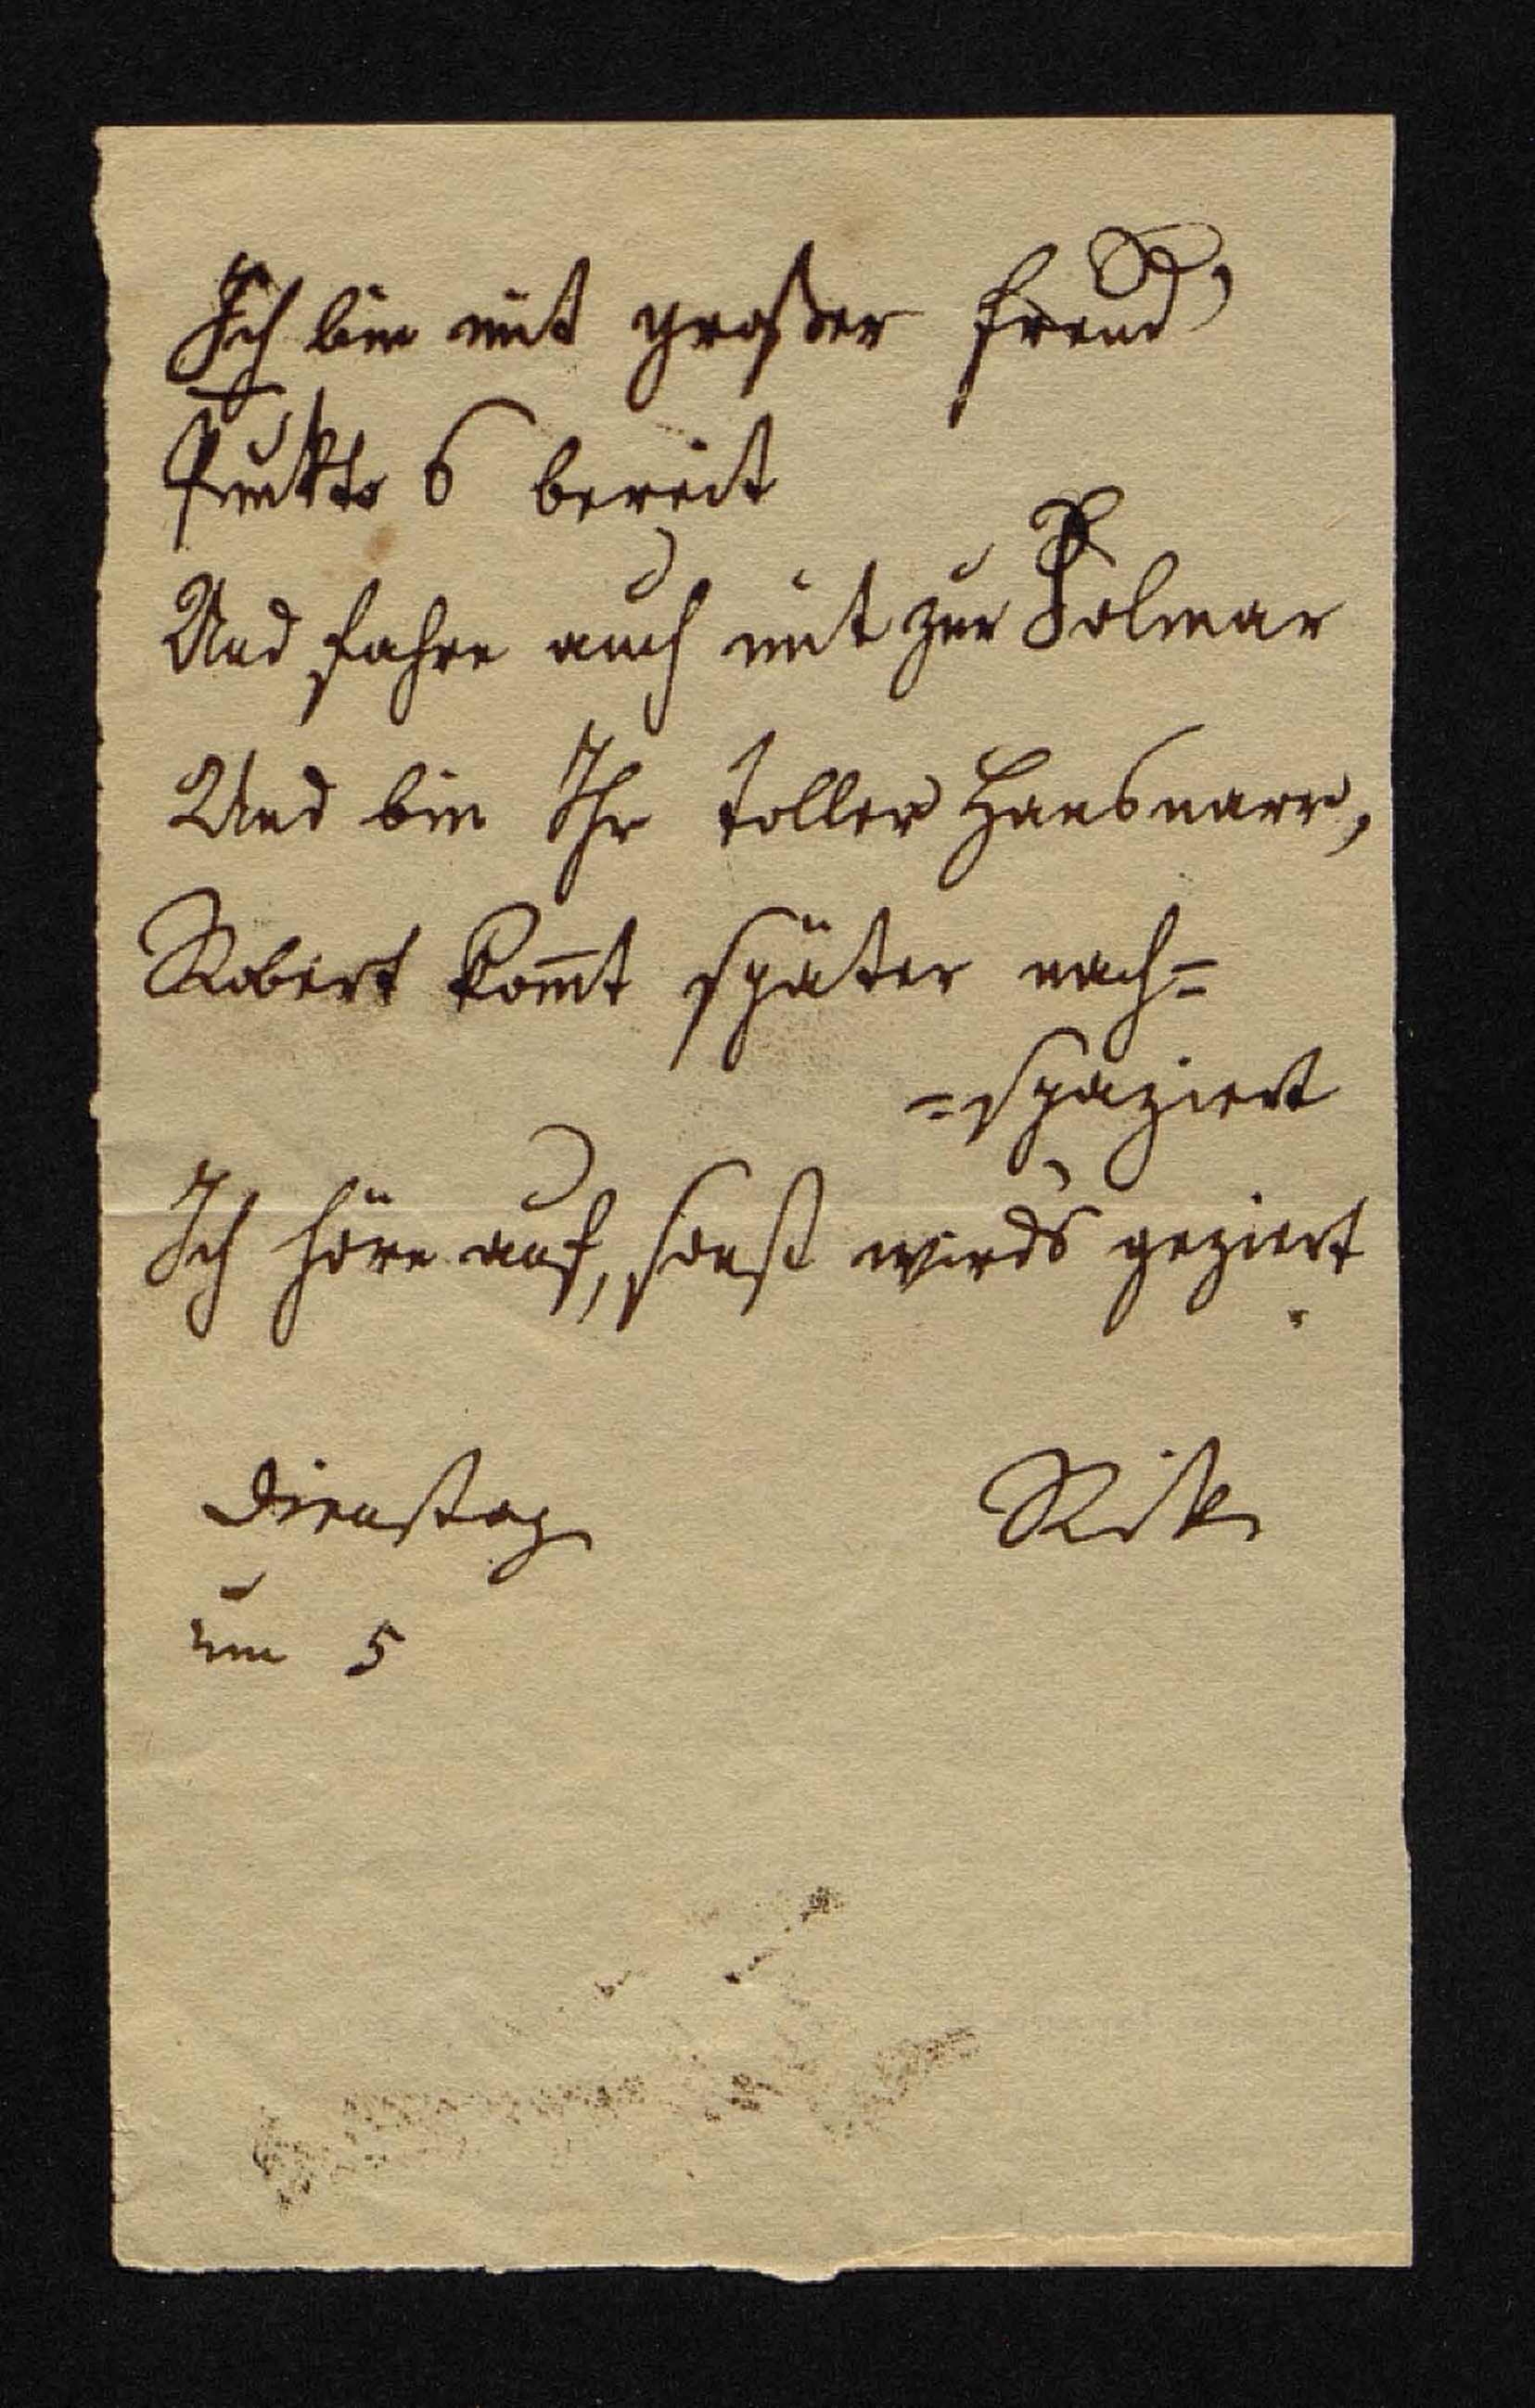 Ich bin mit großer Freud’
Punkto 6 bereit
Und fahre auch mit zur Polmar
Und bin Ihr toller Hansnarr,
Robert kom̄t später nach=
=spaziert
Ich höre auf, sonst wirds geziert.
Dienstag Rike
um 5